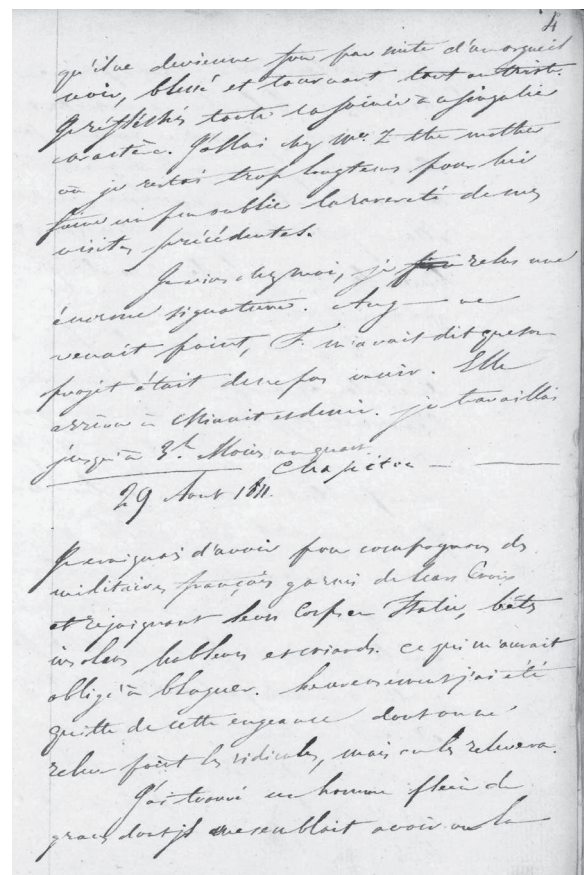 4
qu'il ne devienne fou par suite d'un orgueil
noir, blessé et tournant tout au triste.
Je réfléchis toute la soirée à ce singulier
caractère. J'allai chez Me Z the mother
où je restai trop longtems pour lui
faire un peu oublier la rareté de mes
visites précédentes.
Je vins chez moi, je relus une
énorme signature. Ang — ne
venait point, F. m'avait dit que son
projet était de ne pas venir. Elle
arriva à Minuit et demi. je travaillai
jusqu'à 3h. Moins un quart.
Chapitre —
29 Aout 1811.
Je craignais d'avoir pour compagnons des
militaires français garnis de leurs Croix
et rejoignant leurs Corps en Italie, bêtes
insolens hableurs et criards. ce qui m'aurait
obligé à blaguer. heureusement j'ai été
quitte de cette engeance dont on ne
relève point les ridicules, mais on les relevera.
J'ai trouvé un homme plein de
grace dont je me semblait avoir vu la